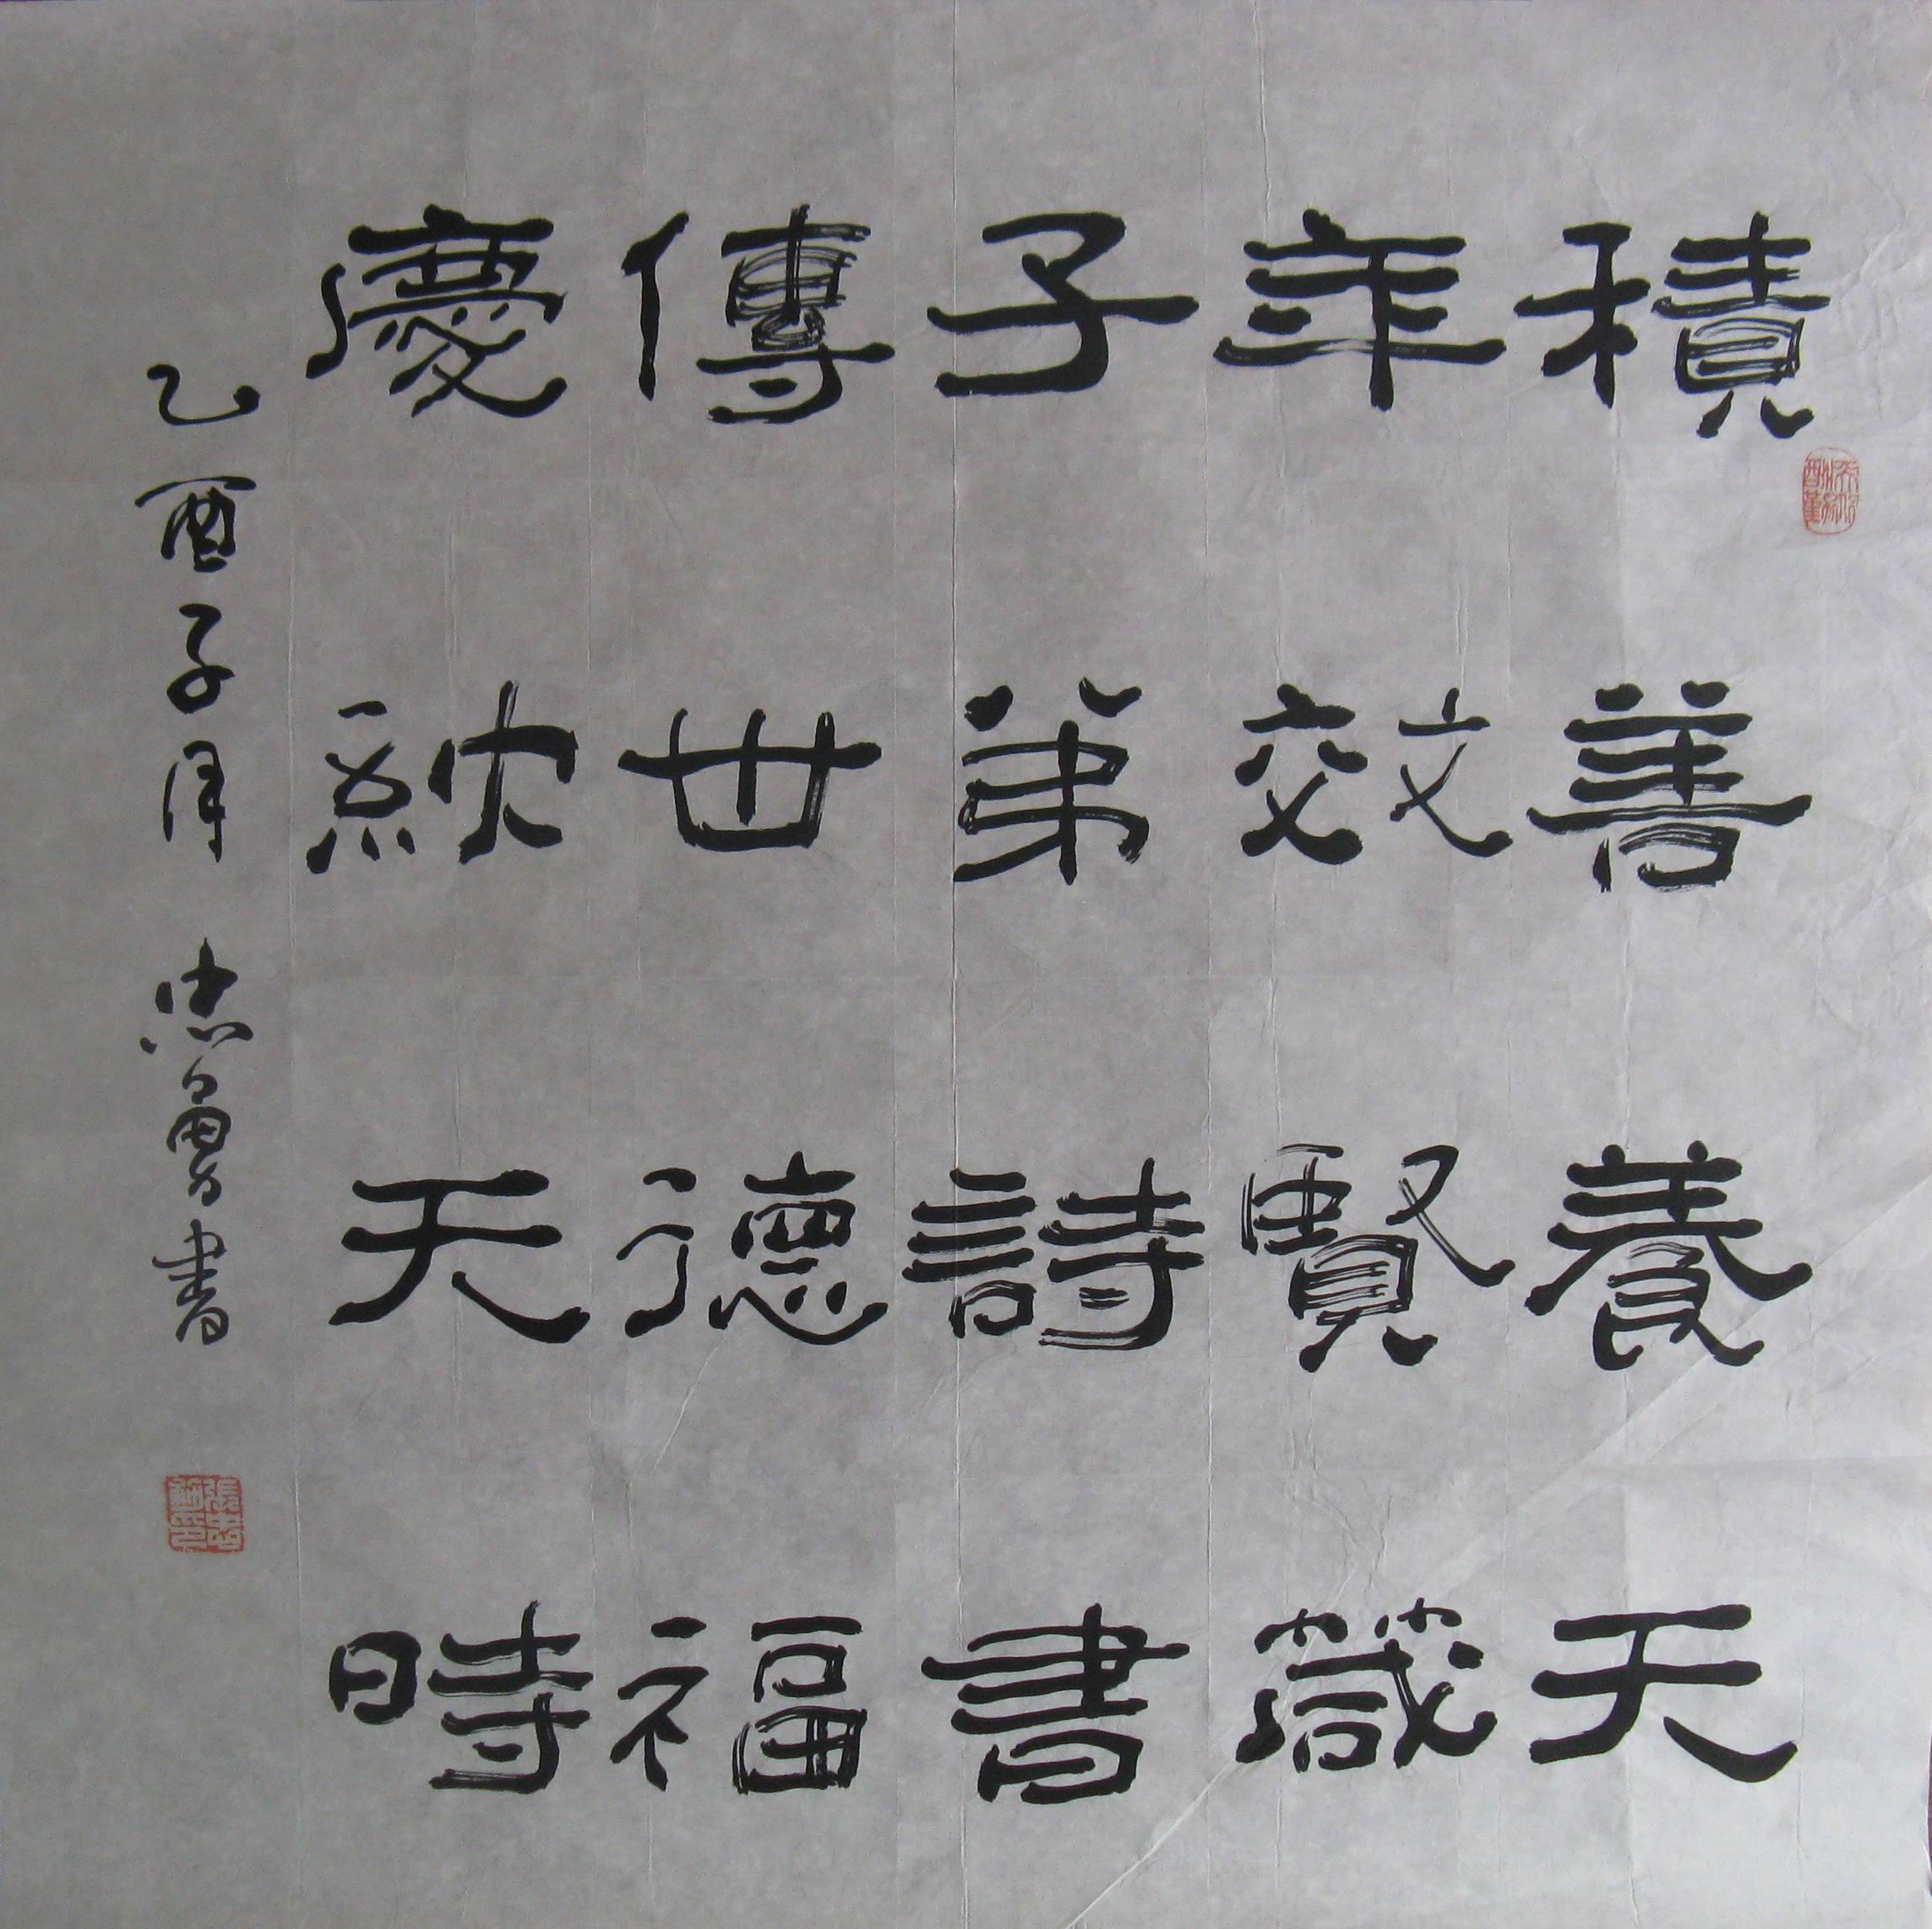 積善養天
年效賢箴
子弟詩書
傳世德福
慶納天時
乙酉子月 忠勇書